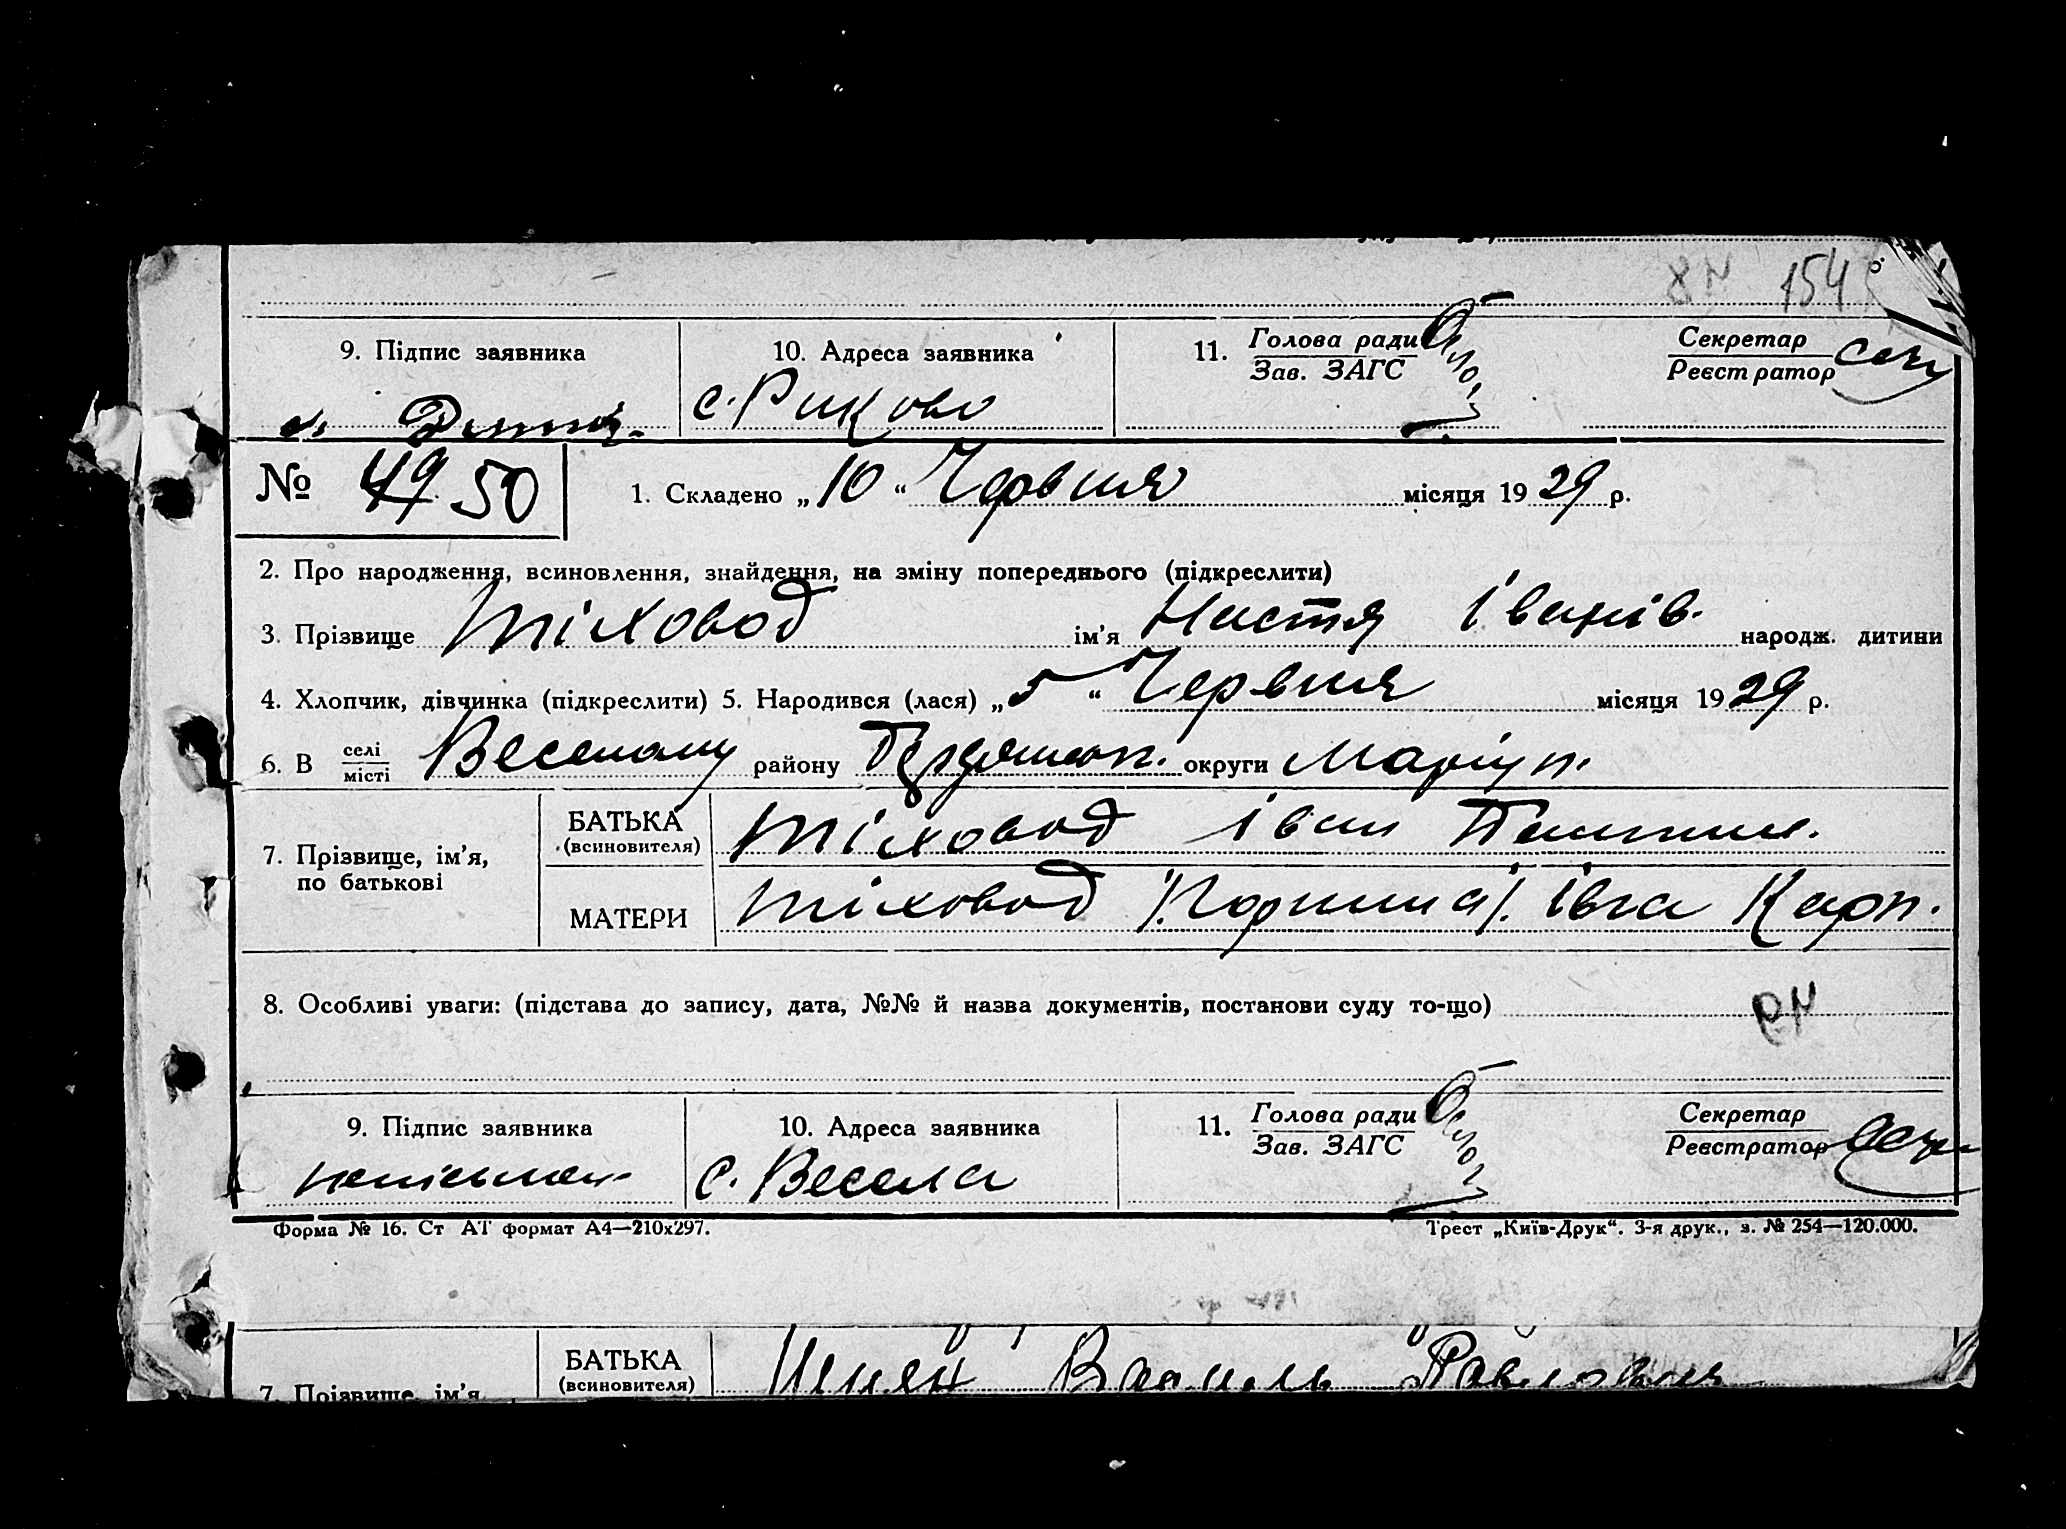 154
9. Підпис заявника
10. Адреса заявника
11. Голова ради
Зав. ЗАГС
Секретар
Реєстратор
с. Риково
№ 49 50
1. Складено „10“ Червня місяця 1929 р.
2. Про народження, всиновлення, знайдення, на зміну попереднього (підкреслити)
3. Прізвище Тіховод ім’я Настя Іванів. народж. дитини
4. Хлопчик, дівчинка (підкреслити) 5. Народився (лася) „5“ Червня місяця 1929 р.
6. В селі
місті Веселому району округи Маріуп.
7. Прізвище, ім’я,
по батькові
БАТЬКА
(всиновителя)
Тіховод Іван
МАТЕРИ
Тіховод Івга Карп.
8. Особливі уваги: (підстава до запису, дата, №№ й назва документів, постанови суду то-що)
9. Підпис заявника
10. Адреса заявника
11. Голова ради
Зав. ЗАГС
Секретар
Реєстратор
неписьмен.
с. Весела
Форма № 16. Ст АТ формат А4—210х297.
Трест „Київ-Друк“. 3-я друк., з. № 254—120.000.
7. Прізвище, ім’я,
БАТЬКА
(всиновителя)
Василь Павлович